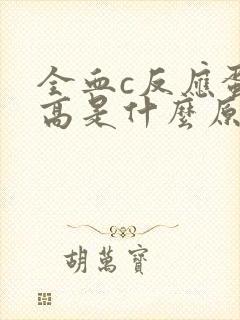 全血c反應蛋
高是什麼原
胡萬寶